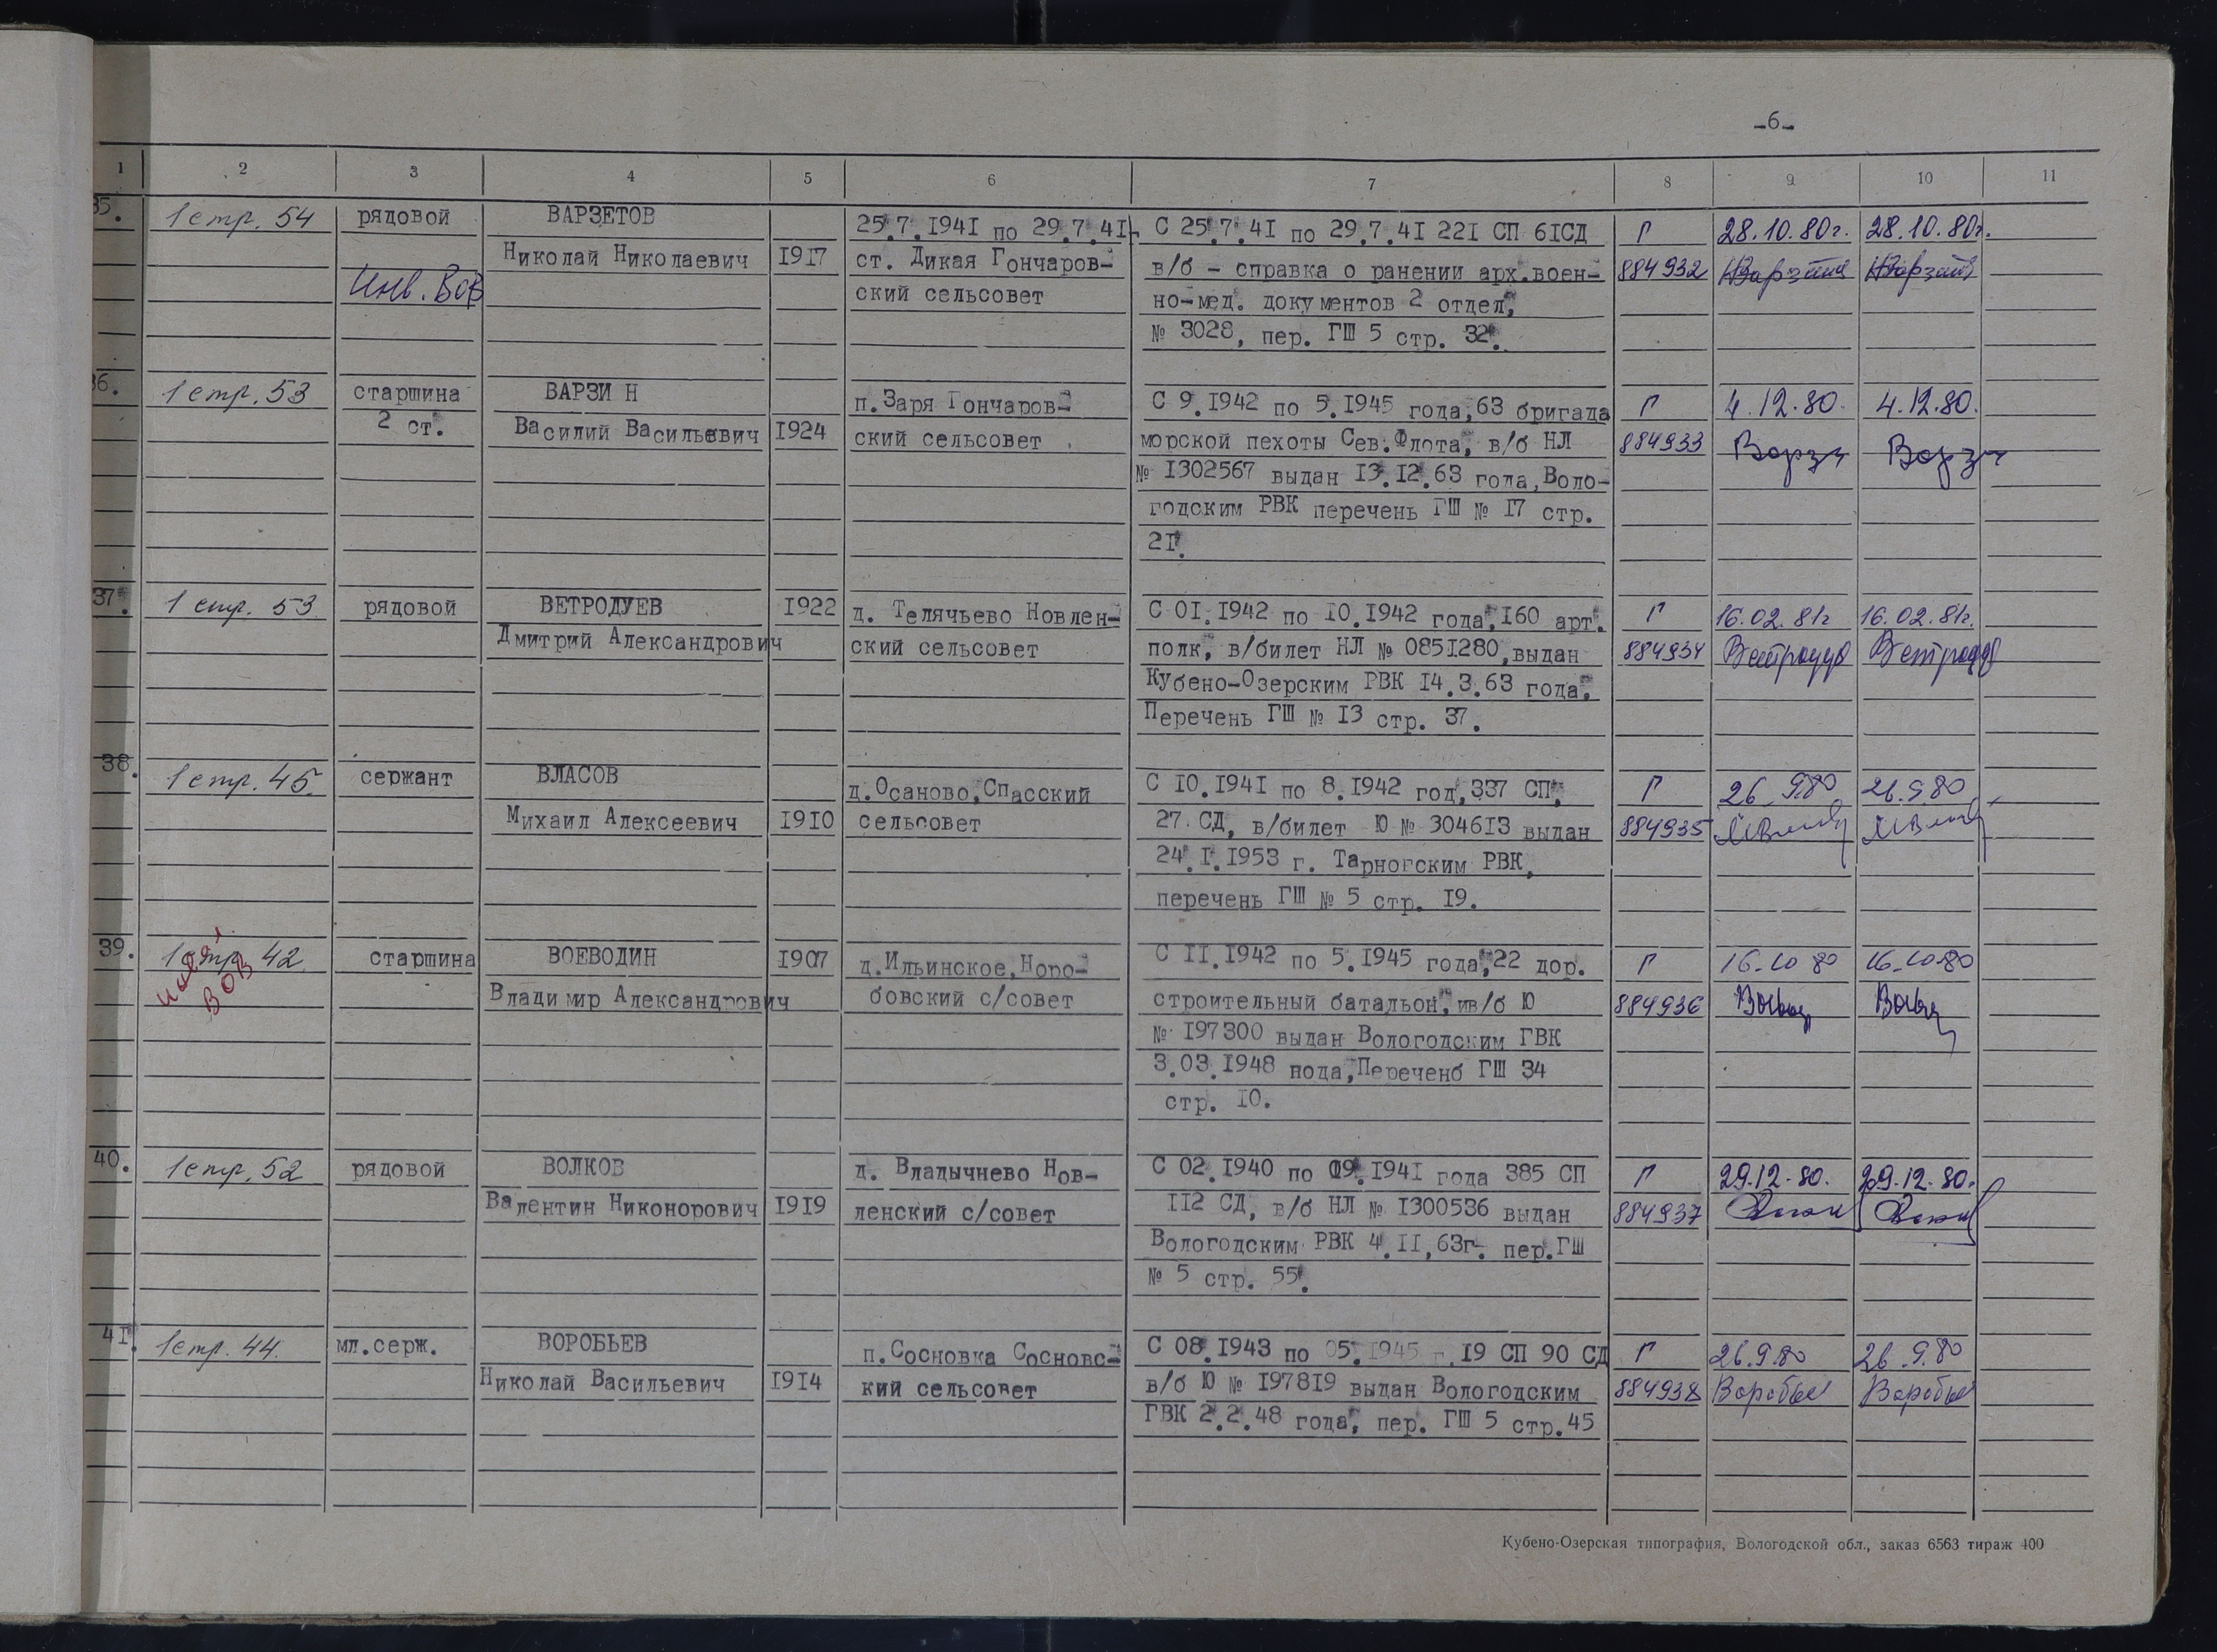 -6-
1 2 3 4 5 6 7 8 9 10 11
35. 1 стр. 54 рядовой ВАРЗЕТОВ 25.7.1941 по 29.7.41 С 25.7.41 по 29.7.41 221 СП 61СД Г 28.10.80г. 28.10.80г.
Николай Николаевич 1917 ст. Дикая Гончаров- в/б - справка о ранении арх.воен- 884932
Инв. ВОВ ский сельсовет но-мед. документов 2 отдел,
№ 3028, пер. ГШ 5 стр. 32.
36. 1 стр. 53 старшина ВАРЗИН п.Заря Гончаров- С 9.1942 по 5.1945 года,63 бригада Г 4.12.80. 4.12.80.
2 ст. Василий Васильевич 1924 ский сельсовет морской пехоты Сев.Флота, в/б НЛ 884933
№ 1302567 выдан 13.12.63 года,Воло-
годским РВК перечень ГШ № 17 стр.
21.
37. 1 стр. 53 рядовой ВЕТРОДУЕВ 1922 д. Телячьево Новлен- С 01.1942 по 10.1942 года,160 арт. Г 16.02.81г 16.02.81г.
Дмитрий Александрович ский сельсовет полк, в/билет НЛ № 0851280,выдан 884934
Кубено-Озерским РВК 14.3.63 года.
Перечень ГШ № 13 стр. 37.
38. 1 стр. 45. сержант ВЛАСОВ д.Осаново,Спасский С 10.1941 по 8.1942 год,337 СП, Г 26.9.80 26.9.80
Михаил Алексеевич 1910 сельсовет 27 СД, в/билет Ю № 304613 выдан 884935
24.1.1953 г. Тарногским РВК,
перечень ГШ № 5 стр. 19.
39. 1 стр. 42 старшина ВОЕВОДИН 1907 д.Ильинское,Норо- С 11.1942 по 5.1945 года,22 дор. Г 16.10 80 16.10.80
ВОВ Владимир Александрович бовский с/совет строительный батальон, ив/б Ю 884936
№ 197300 выдан Вологодским ГВК
3.03.1948 нода,Переченб ГШ 34
стр. 10.
40. 1 стр. 52 рядовой ВОЛКОВ д. Владычнево Нов- С 02.1940 по 09.1941 года 385 СП Г 29.12.80. 29.12.80.
Валентин Никонорович 1919 ленский с/совет 112 СД, в/б НЛ № 1300536 выдан 884937
Вологодским РВК 4.11,63г. пер.ГШ
№ 5 стр. 55.
41. 1 стр. 44. мл.серж. ВОРОБЬЕВ п.Сосновка Сосновс- С 08.1943 по 05.1945 г.19 СП 90 СД Г 26.9.80 26.9.80
Николай Васильевич 1914 кий сельсовет в/б Ю № 197819 выдан Вологодским 884938
ГВК 2.2.48 года, пер. ГШ 5 стр.45
Кубено-Озерская типография, Вологодской обл., заказ 6563 тираж 400